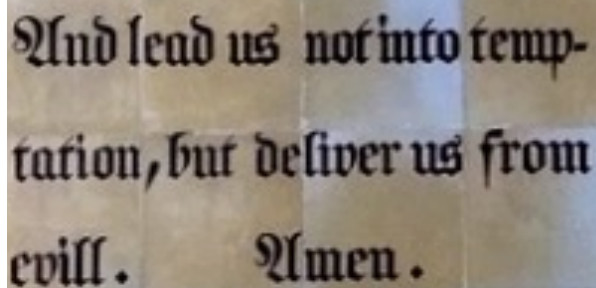 And lead us not into temp-
tation, but deliver us from
evill. Amen.